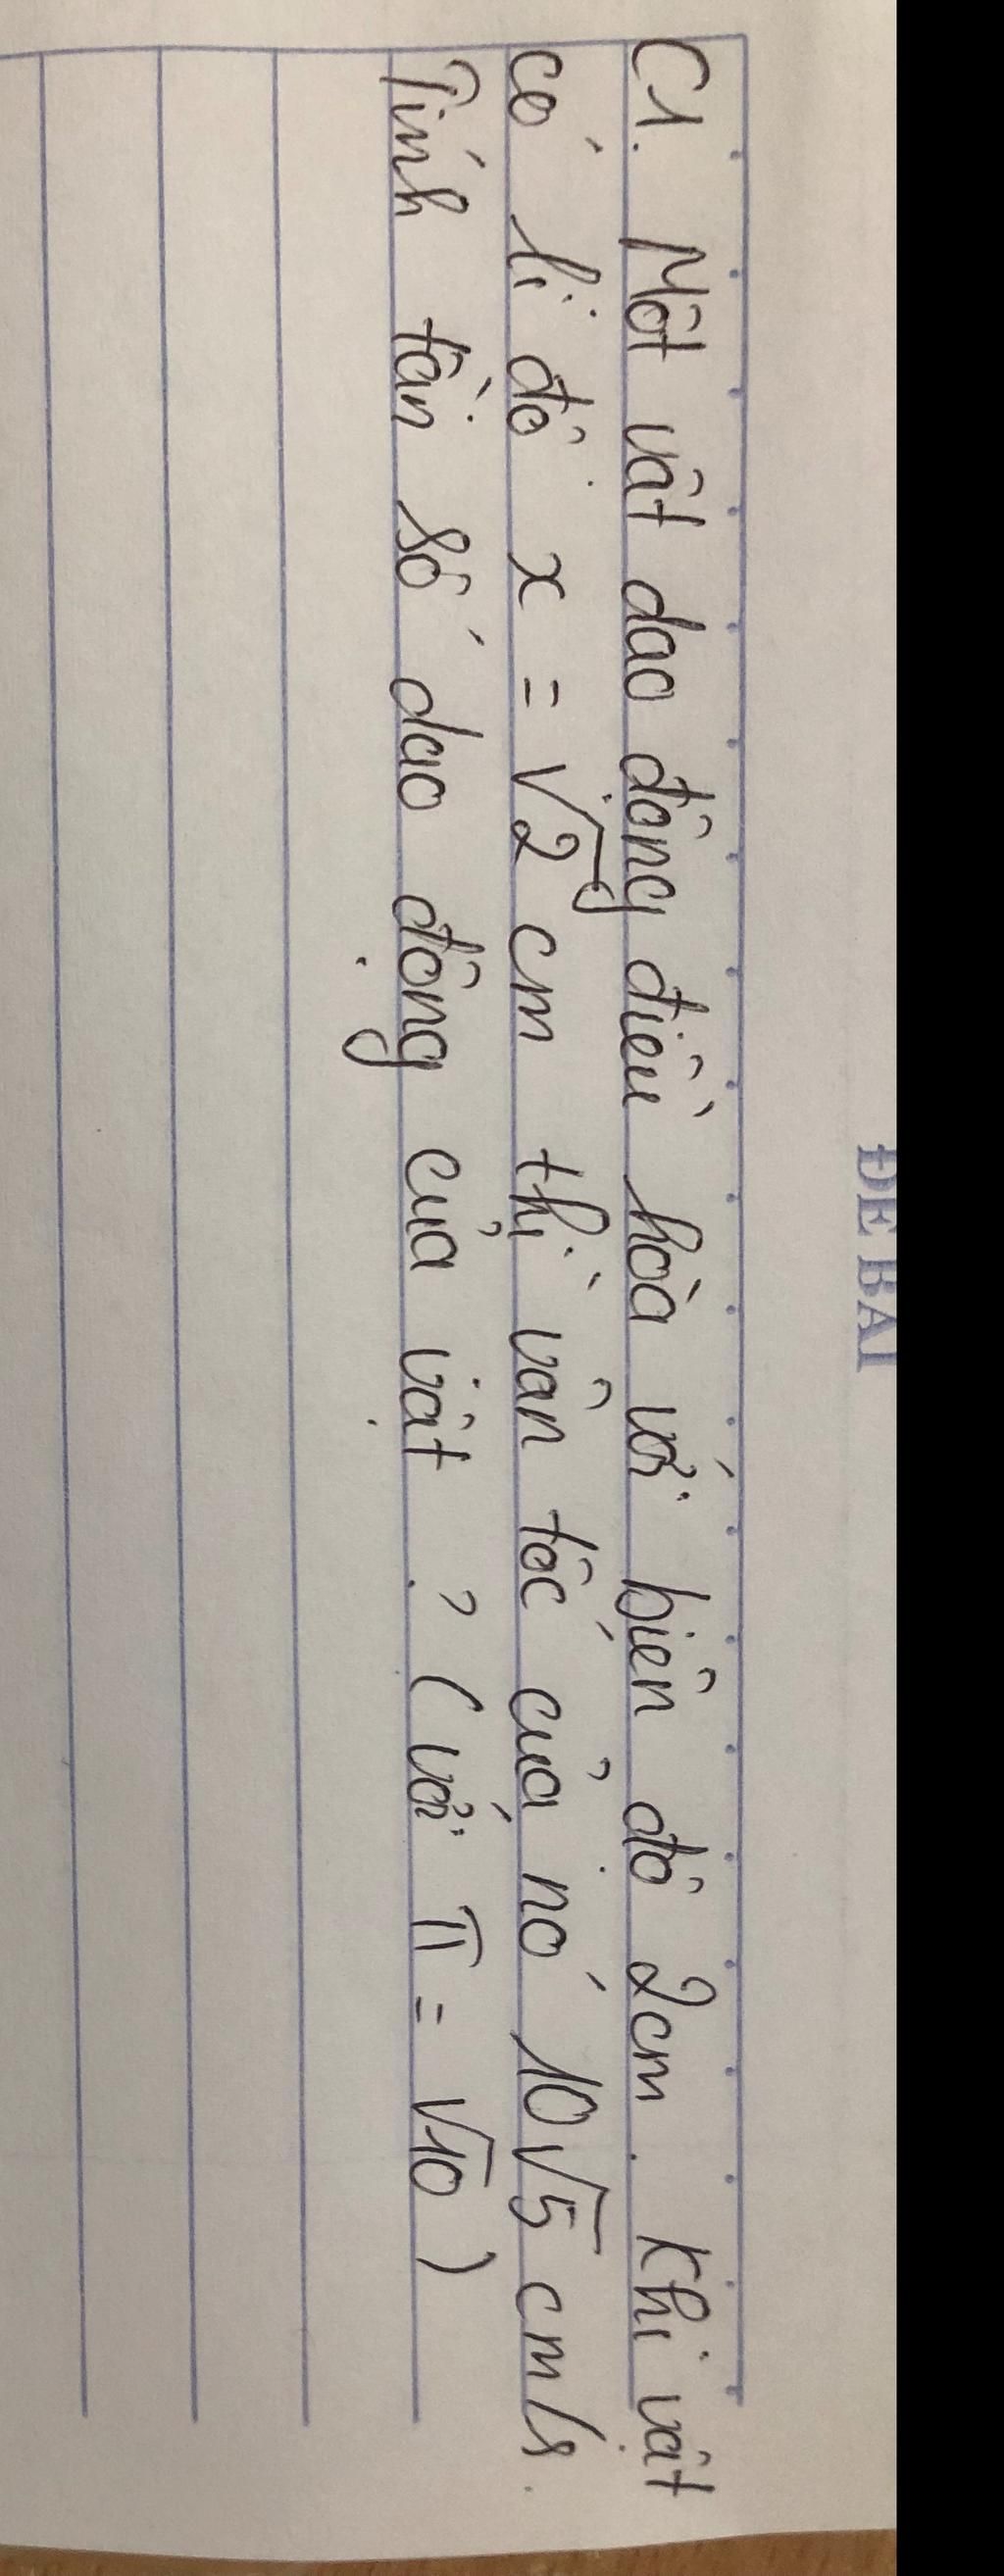 ĐỀ BÀI
C1. Một vật dao động điều hoà với biên độ 2cm. Khi vật
có li độ x = √2 cm thì vận tốc của nó 10√5 cm/s.
Tính tần số dao động của vật ? (với π = √10)